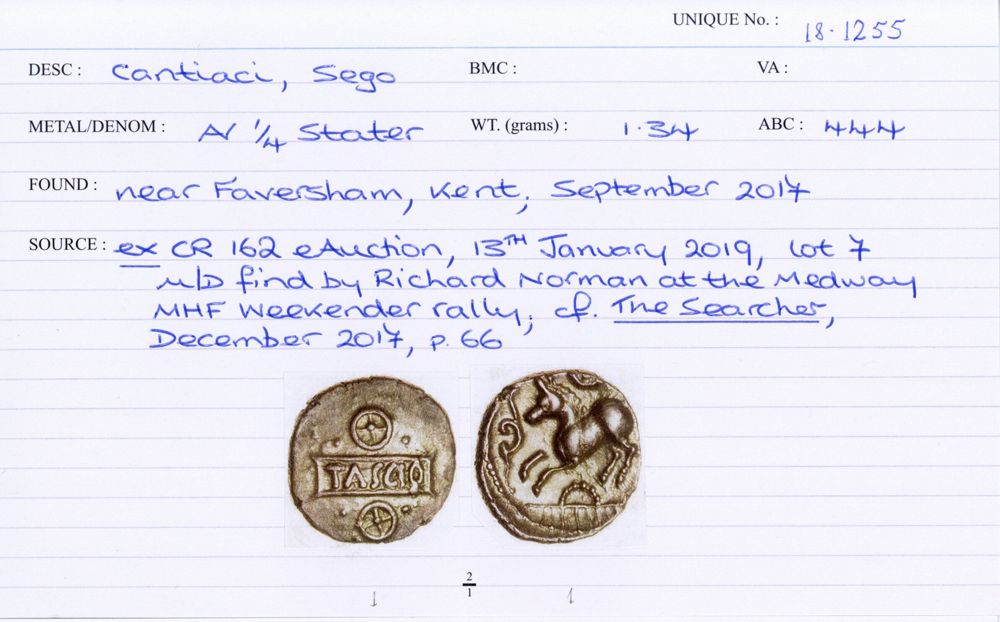 UNIQUE No. : 18.1255
DESC : Cantiaci, Sego BMC : VA :
METAL/DENOM : AV 1/4 Stater WT. (grams) : 1.34 ABC : 444
FOUND : near Faversham, Kent, September 2017
SOURCE : ex CR 162 eAuction, 13TH January 2019, lot 7
M/D find by Richard Norman at the Medway
MHF Weekender rally; cf. The Searcher,
December 2017, p. 66
TASCIO
2
1
1 1